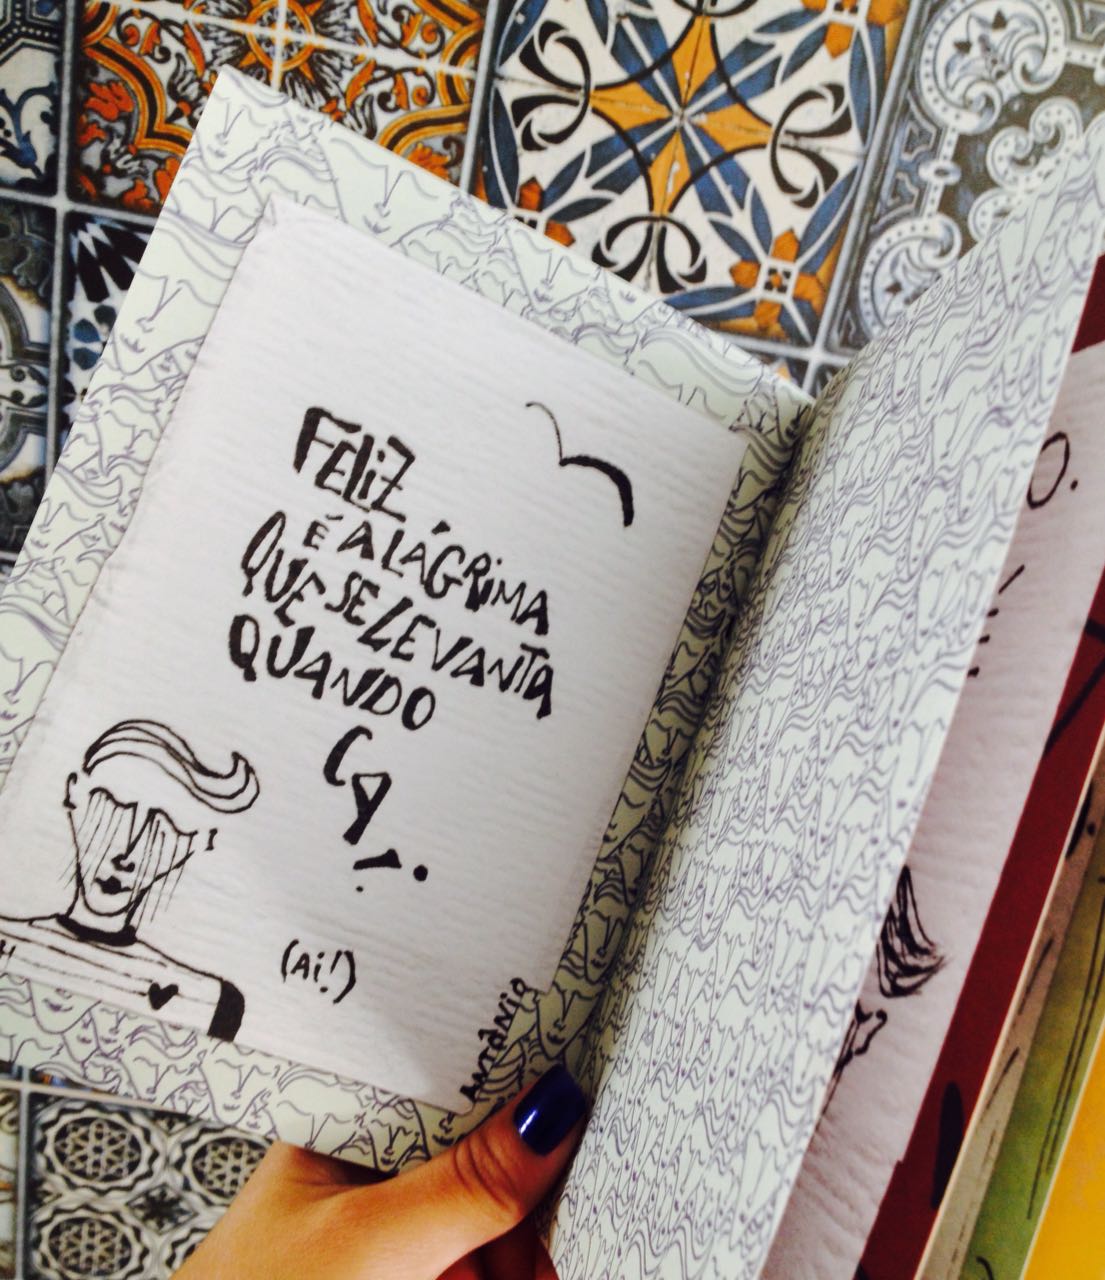 FELIZ
É A LÁGRIMA
QUE SE LEVANTA
QUANDO
CAI.
(Ai!)
ANTÔNIO
O.